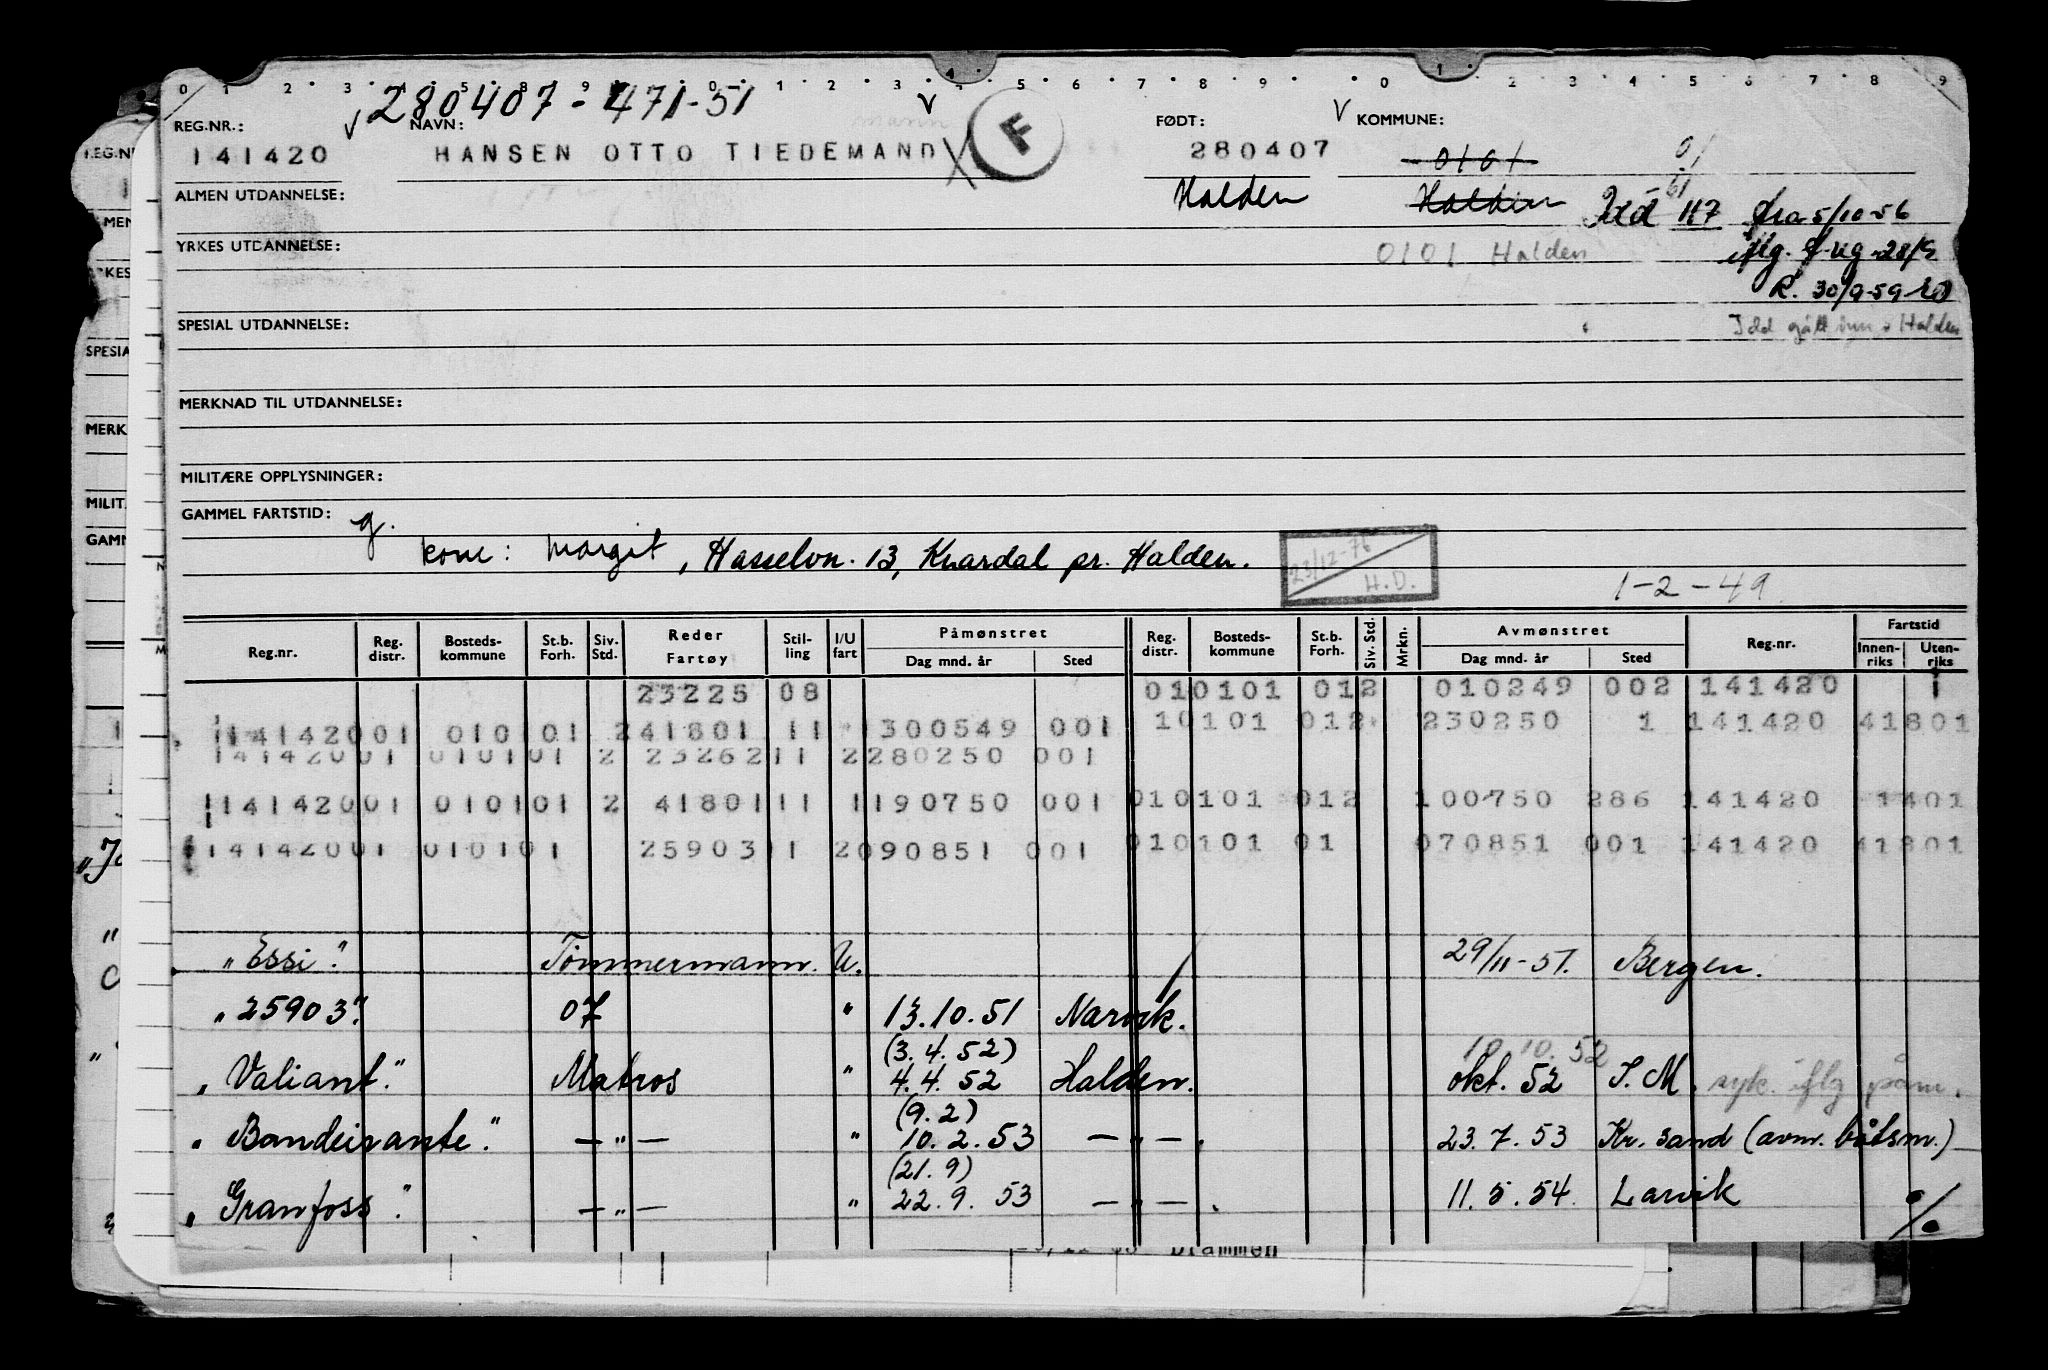 0 1 2 3 4 5 8 9 0 1 2 3 4 5 6 7 8 9 0 1 2 3 4 5 6 7 8 9
280407-471-51
REG.NR.: NAVN: FØDT: KOMMUNE:
141420 HANSEN OTTO TIEDEMAND F 280407 0101 01
ALMEN UTDANNELSE: Halden Halden Idd 117 fra 5/10-56
YRKES UTDANNELSE: 0101 Halden iflg. 28/9
R. 30/9-59
SPESIAL UTDANNELSE: Idd gått inn i Halden
MERKNAD TIL UTDANNELSE:
MILITÆRE OPPLYSNINGER:
GAMMEL FARTSTID: g.
kone: Margit, Hasselvn. 13, Knardal pr. Halden. 23/12-76 H.D.
1-2-49
Reg.nr. Reg. distr. Bosteds- kommune St.b. Forh. Siv. Std. Reder Fartøy Stil- ling I/U fart Påmønstret Dag mnd. år Sted Reg. distr. Bosteds- kommune St.b. Forh. Siv. Std. Mrkn. Avmønstret Dag mnd. år Sted Reg.nr. Fartstid Innen- riks Uten- riks
23225 08 010101 012 010249 002 141420 1
14142001 010101 241801 11 300549 001 10101 012 230250 1 141420 41801
14142001 010101 2 23262 11 2 280250 001
14142001 010101 2 41801 11 1 190750 001 010101 012 100750 286 141420 1401
14142001 010101 25903 11 2 090851 001 010101 01 070851 001 141420 41801
"Essi". Tømmermann. U. 29/11-51. Bergen.
"25903". 07 " 13.10.51 Narvik.
(3.4.52) 10.10.52
"Valiant." Matros " 4.4.52 Halden. okt. 52 S.M. syk. iflg påm.
(9.2)
"Bandeirante." —"— " 10.2.53 —"—. 23.7.53 Kr. sand (avm. båtsm.)
(21.9)
"Granfoss". —"— " 22.9.53 —"—. 11.5.54. Larvik
%
Drammen